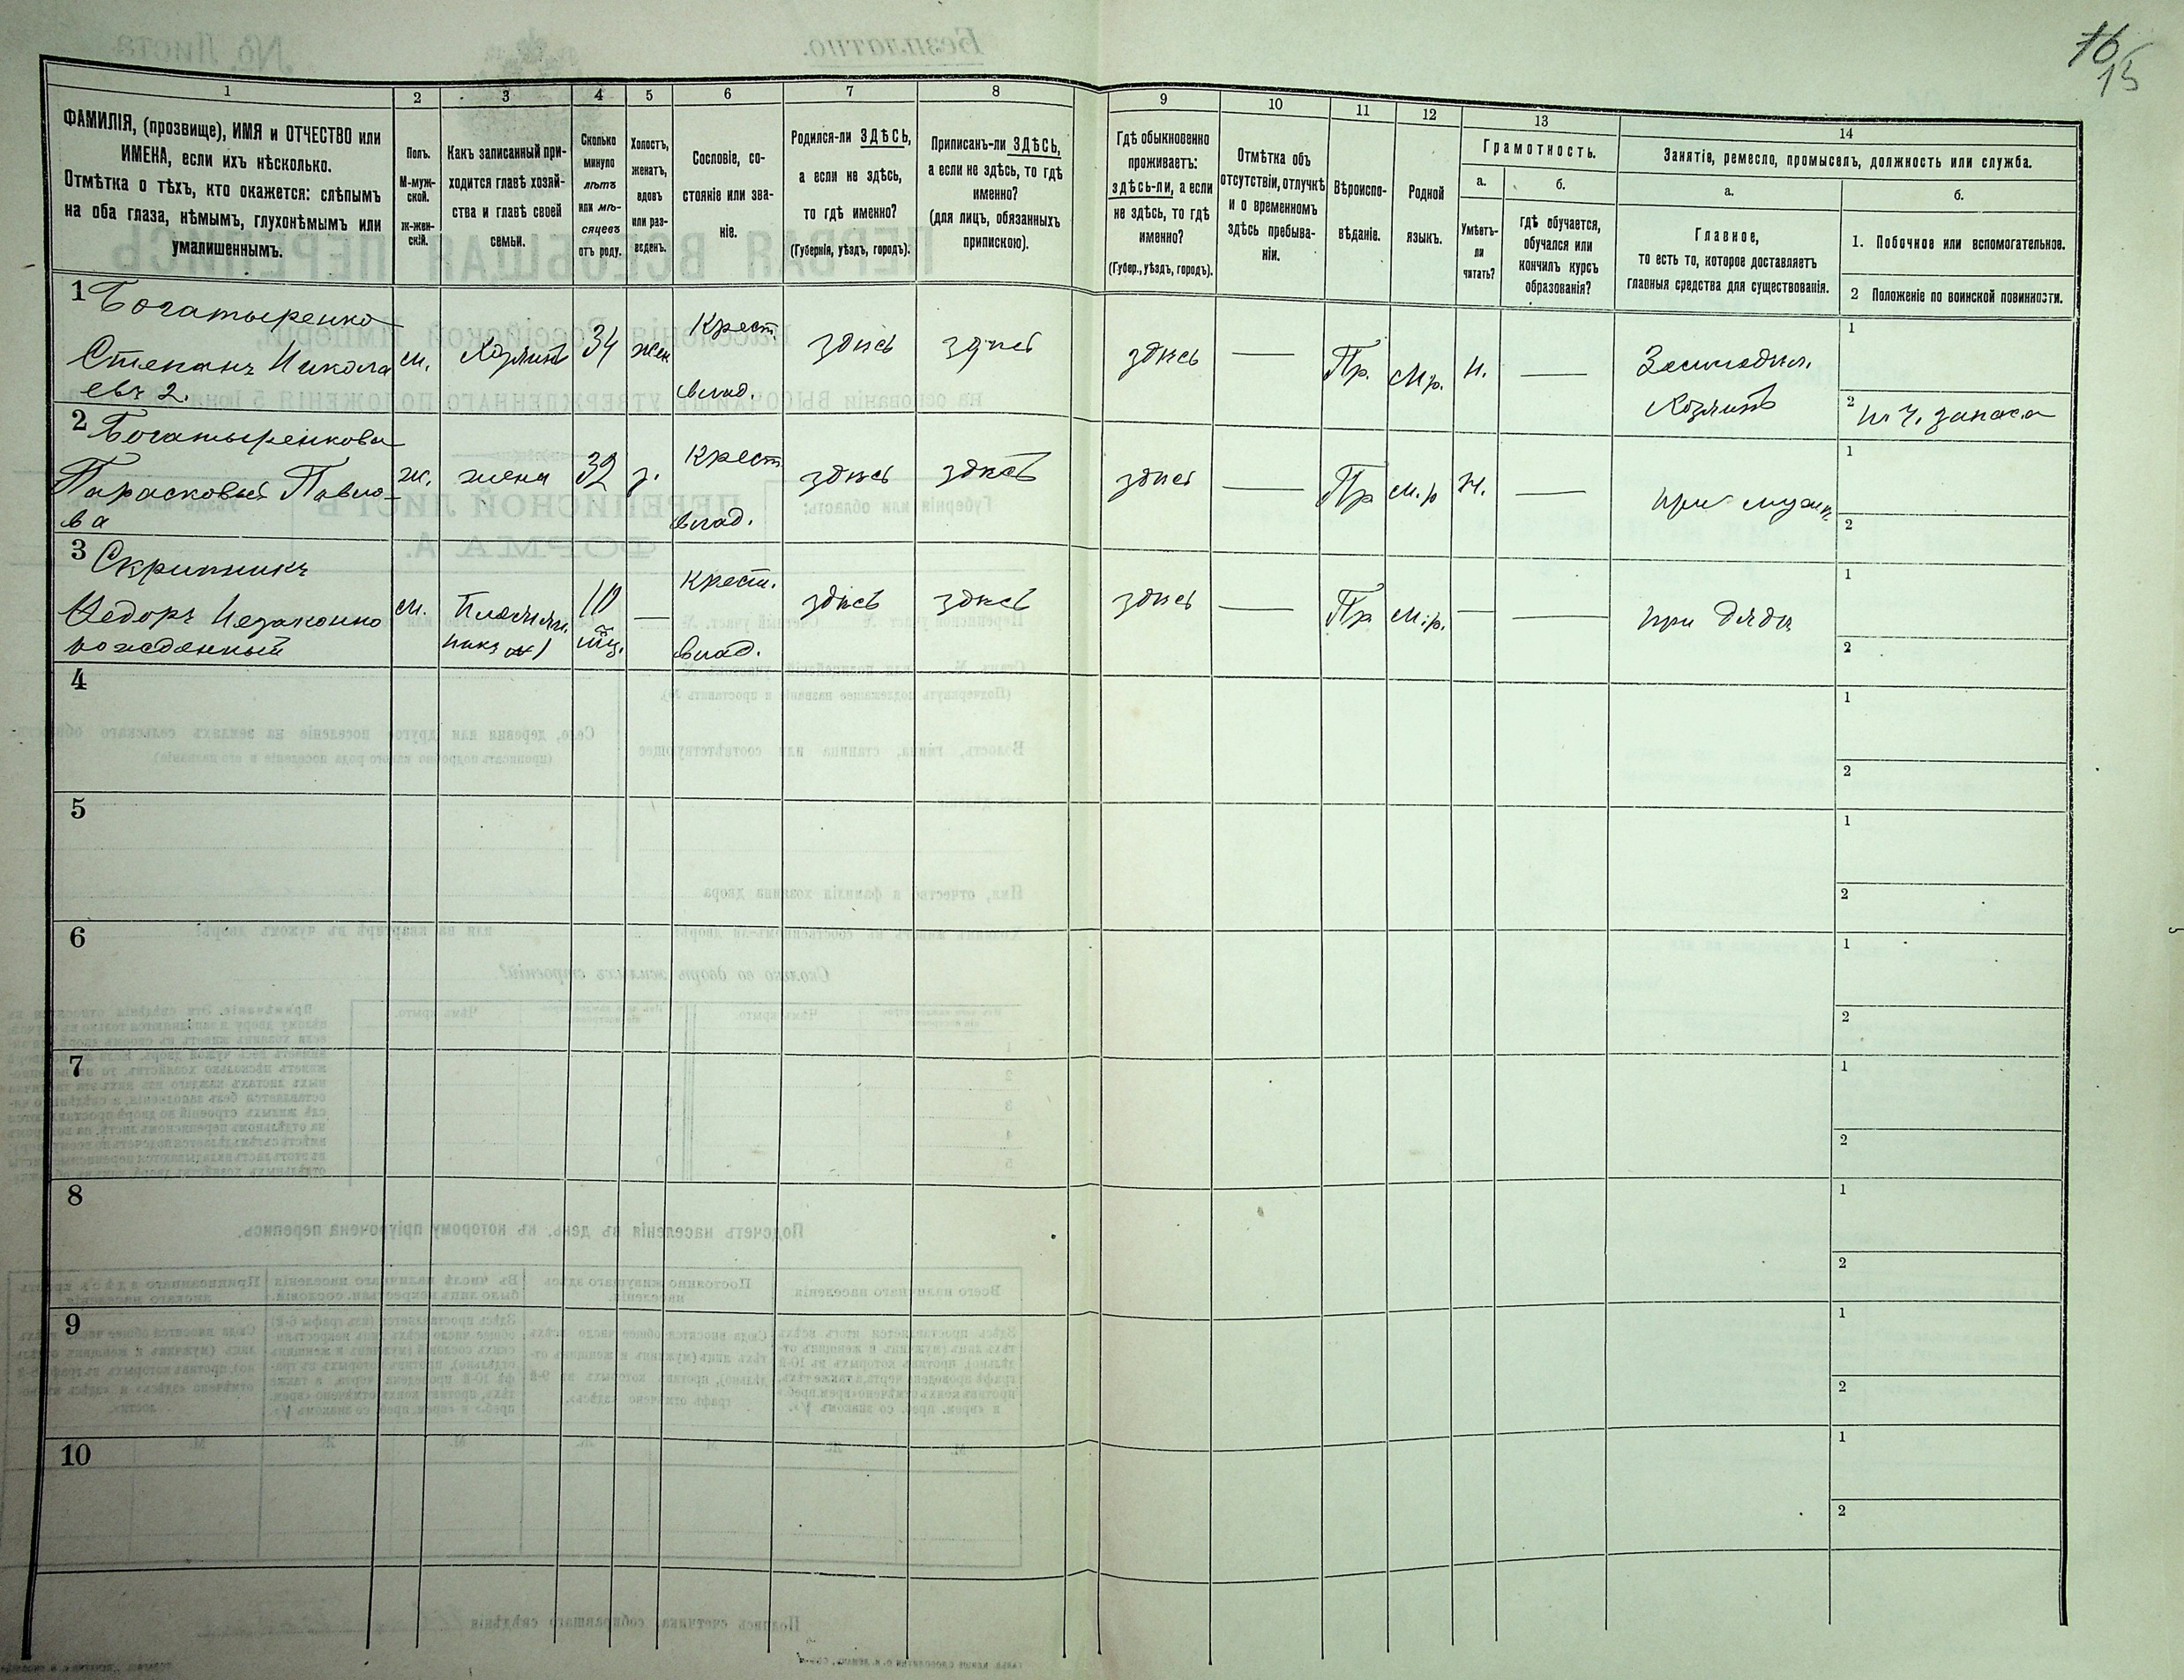 16
15
1
2
3
4
5
6
7
8
9
10
11
12
13
14
ФАМИЛІЯ, (прозвище), ИМЯ и ОТЧЕСТВО или
ИМЕНА, если ихъ нѣсколько.
Отмѣтка о тѣхъ, кто окажется: слѣпымъ
на оба глаза, нѣмымъ, глухонѣмымъ или
умалишеннымъ.
Полъ.
М-муж-
ской.
ж-жен-
скій.
Какъ записанный при-
ходится главѣ хозяй-
ства и главѣ своей
семьи.
Сколько
минуло
лѣтъ
или мѣ-
сяцевъ
отъ роду.
Холостъ,
женатъ,
вдовъ
или раз-
веденъ.
Сословіе, со-
стояніе или зва-
ніе.
Родился-ли ЗДѢСЬ,
а если не здѣсь,
то гдѣ именно?
(Губернія, уѣздъ, городъ).
Приписанъ-ли ЗДѢСЬ,
а если не здѣсь, то гдѣ
именно?
(для лицъ, обязанныхъ
припискою).
Гдѣ обыкновенно
проживаетъ:
здѣсь-ли, а если
не здѣсь, то гдѣ
именно?
(Губер., уѣздъ, городъ).
Отмѣтка объ
отсутствіи, отлучкѣ
и о временномъ
здѣсь пребыва-
ніи.
Вѣроиспо-
вѣданіе.
Родной
языкъ.
Грамотность.
а.
б.
Умѣетъ-
ли
читать?
гдѣ обучается,
обучался или
кончилъ курсъ
образованія?
Занятіе, ремесло, промыселъ, должность или служба.
а.
б.
Главное,
то есть то, которое доставляетъ
главныя средства для существованія.
1. Побочное или вспомогательное.
2 Положеніе по воинской повинности.
1 Богатыренко
Степанъ Никола
евъ 2.
м.
Хозяинъ
34
жен
Крест.
влад.
здѣсь
здѣсь
здѣсь
—
Пр.
Мр.
Н.
—
Земледѣл.
Хозяинъ
1
2 запаса
2 Богатыренкова
Парасковья Павло-
ва
ж.
жена
32
з.
Крест
влад.
здѣсь
здѣсь
здѣсь
—
Пр
м.р
Н.
—
при мужѣ
1
2
3 Скрипникъ
Ѳедоръ Незаконно
рожденный
м.
Племян.
никъ к 1
10
мц.
—
Крест.
влад.
здѣсь
здѣсь
здѣсь
—
Пр
м.р.
—
—
при дядѣ
1
2
4
1
2
5
1
2
6
1
2
7
1
2
8
1
2
9
1
2
10
1
2